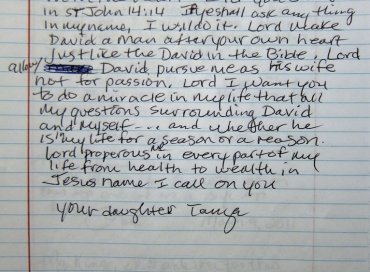 in st John 14:14 If ye shall ask any thing
in my name, I will do it. Lord make
David a man after your own heart
Just like the David in the Bible, Lord
allow David pursue me as his wife
not for passion. Lord I want you
to do a miracle in my life that all
my questions surrounding David
and myself --- and whether he
is my life for a season or a reason.
Lord properous me in every part of my
life from health to wealth in
Jesus name I call on you
your daughter Tanya